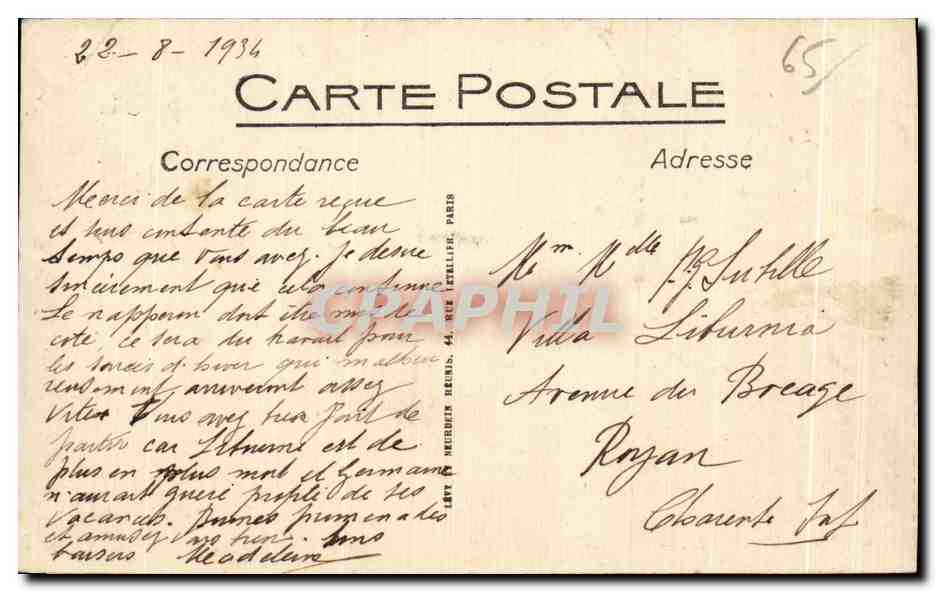 22-8-1934
65
CARTE POSTALE
Correspondance
Adresse
Merci de la carte reçue
et suis contente du beau
temps que vous avez. Je désire
sincèrement que cela continue
Le napperon doit être mis de
coté, ce sera du travail pour
les soirées d'hiver qui malheu
reusement arriveront assez
vite. Vous avez bien fait de
partir car Libourne est de
plus en plus mort et Germaine
n'aurait guere profité de ses
vacances. Bonnes promenades
et amusez vous bien. Bons
baisers Madeleine
LÉVY ET NEURDEIN RÉUNIS, 44, RUE LETELLIER, PARIS
Mm. Melle
Villa Liburnia
Avenue du
Royan
Charente Inf
CPARAPHIL